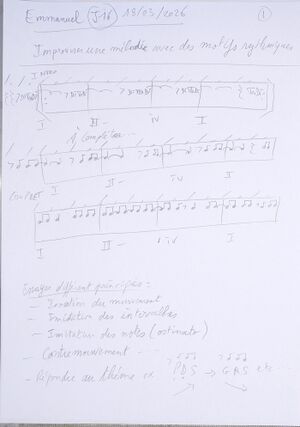 Emmanuel (J-16) 19/03/2026 ①
Improviser une mélodie avec des motifs rythmiques
INTRO
I II - IV I
à compléter...
I II - IV I
COUPLET
I II - IV I
Essayer différent principes :
- Imitation du mouvement
- Imitation des intervalles
- Imitation des notes (ostinato)
- Contremouvement
- Répondre au thème ex PDS → GRS etc...